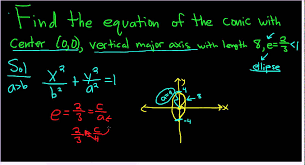 Find the equation of the conic with
center (0,0), vertical major axis with length 8, e = 2/3 < 1
ellipse
Sol
a>b
x²/b² + y²/a² = 1
e = 2/3 = c/a
2/3 = c/4
a=4
8
y
4
x
-4